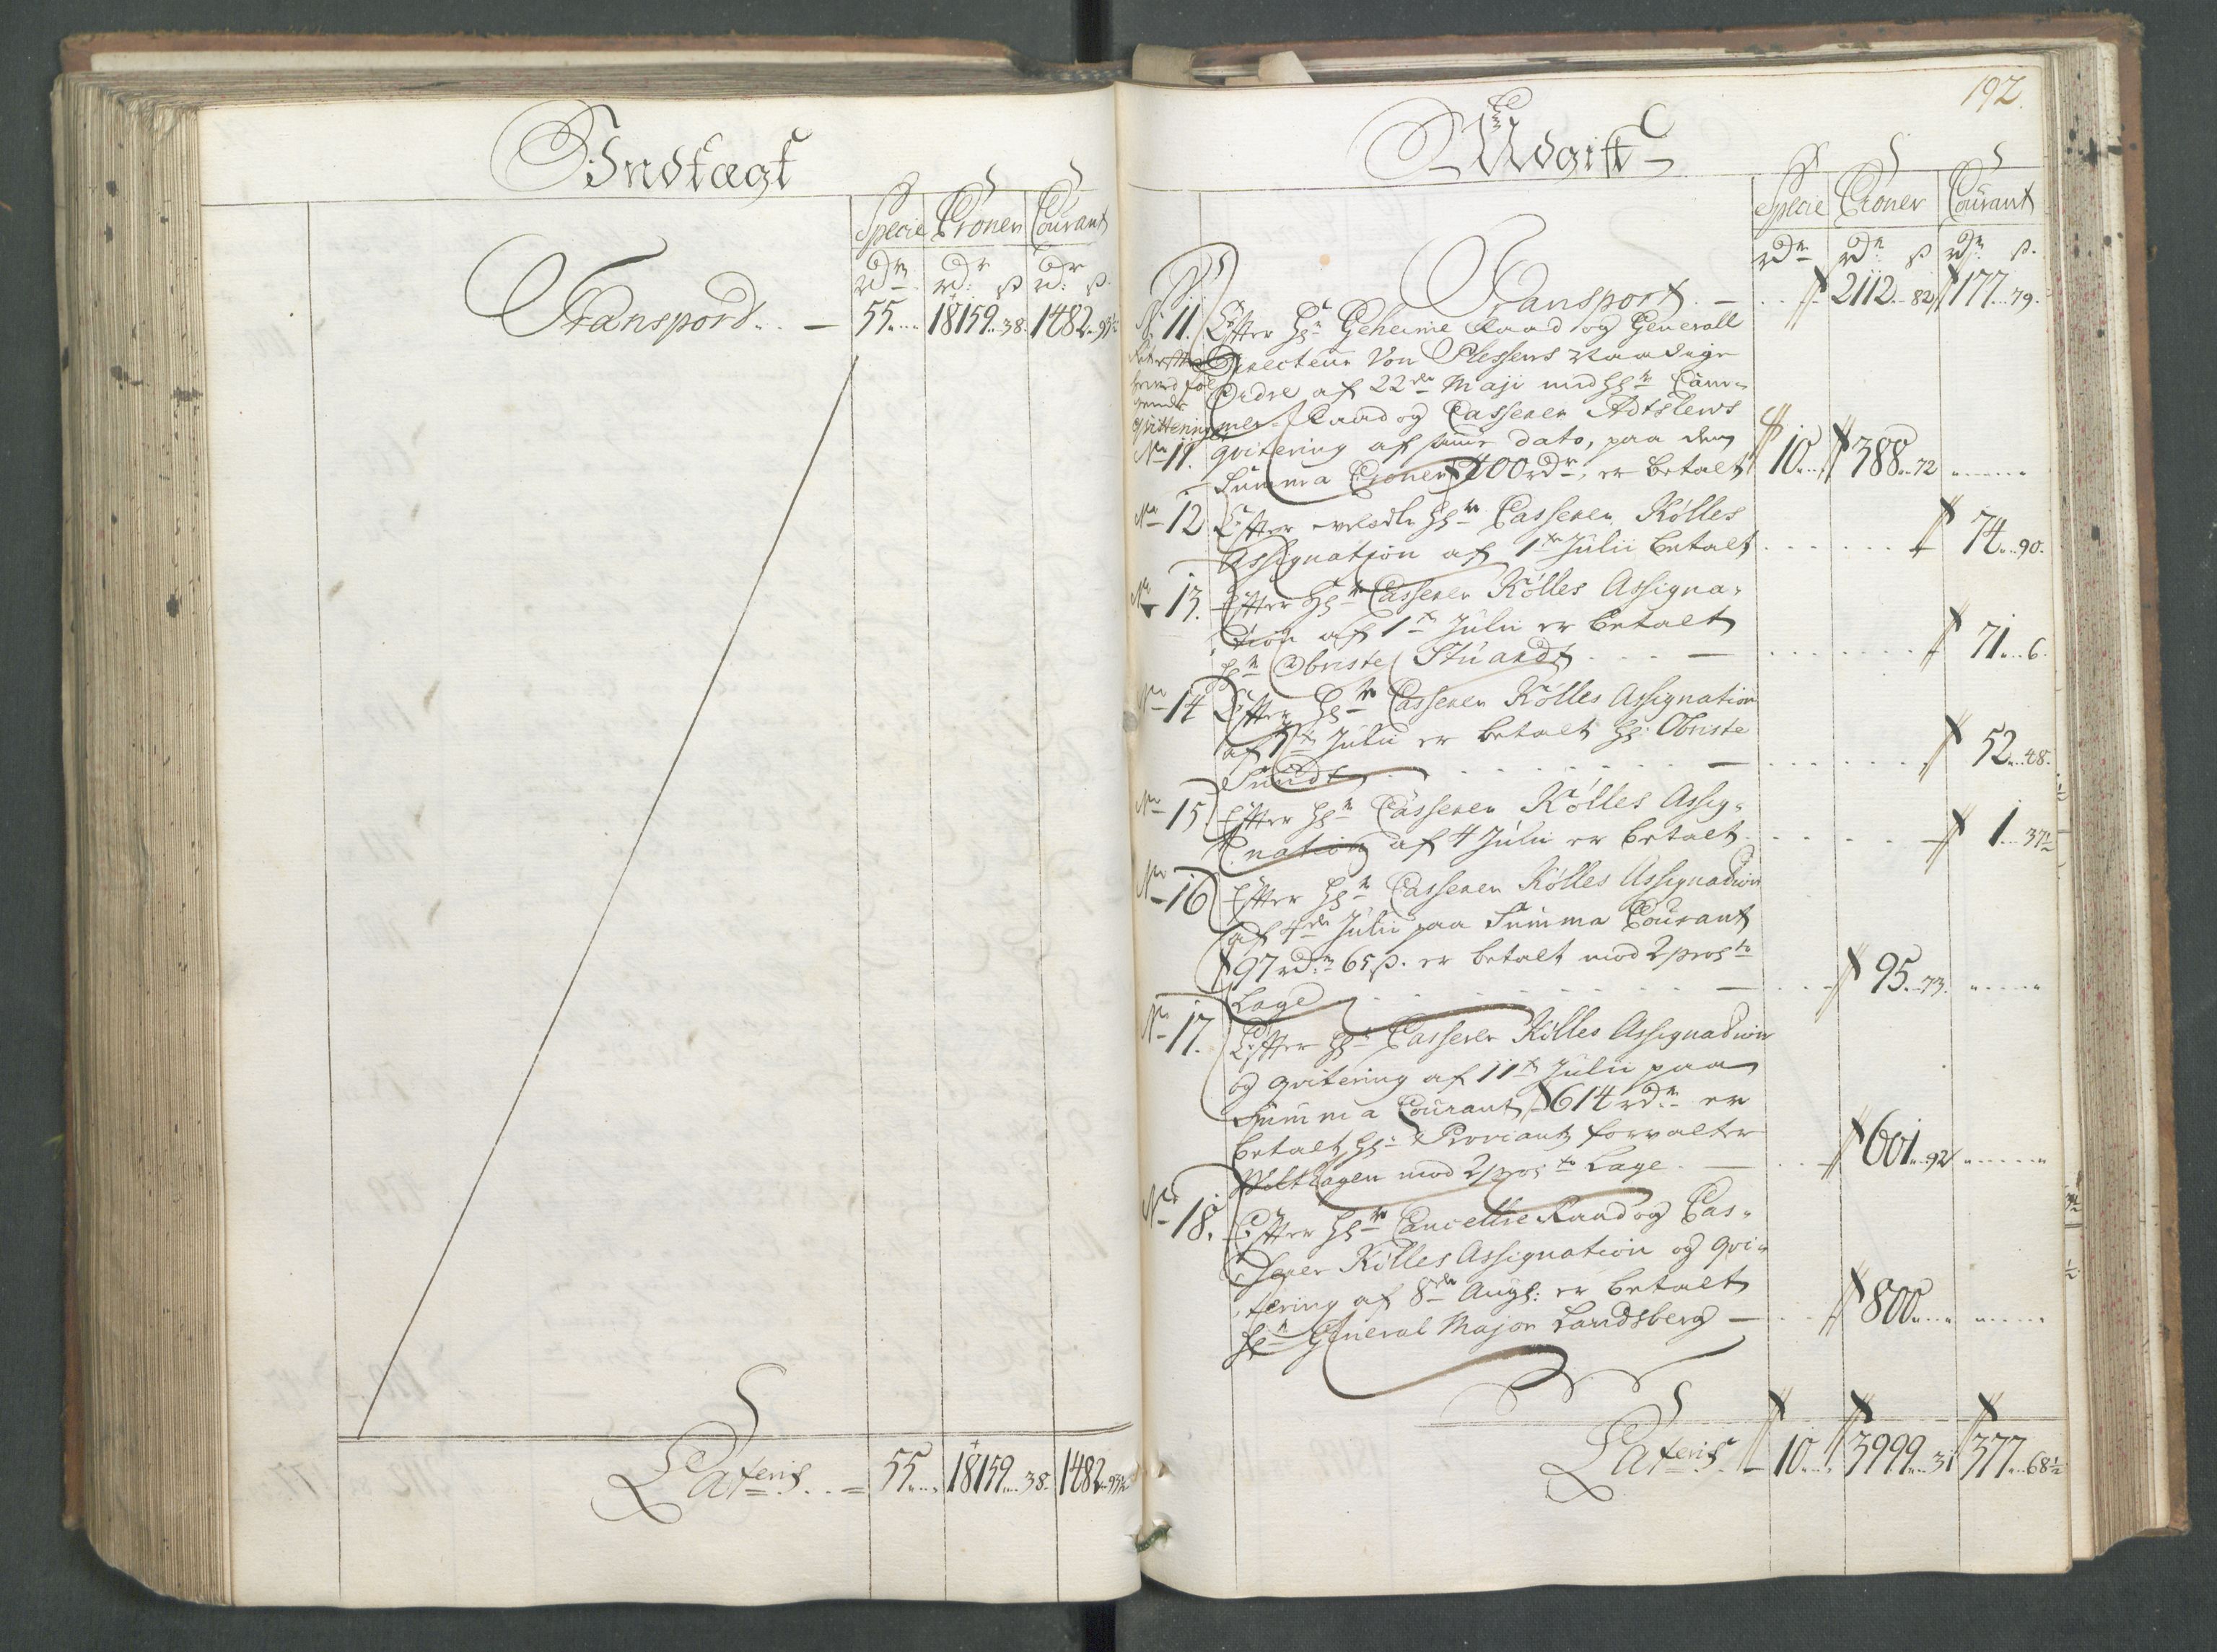 Indtægt
Specie Croner Courant
rdr rdr ß rdr ß
Transport 55 18159 38 1482 93½
Lateris 55 18159 38 1482 93½
192.
Udgift
Specie Croner Courant
rdr rdr ß rdr ß
Transport 2112 82 177 79
No 11. Efter Hr Geheime Raad og Generall
Directeur Von Plessens Naadige
Ordre af 22de Maji med Hr Cam-
mer Raad og Casserer Adtslews
qvittering
No 11. qvitering af samme dato, paa den
Summa Croner 400 rdr, er betalt 10 388 72
No 12 Efter velædle Hr Casserer Kølles
Assignation af 1te Julii betalt 74 90
No 13. Efter Hr Casserer Kølles Assigna-
tion af 1te Julii er betalt
Hr Obriste Stuardt 71 6
No 14 Efter Hr Casserer Kølles Assignation
af 1te Julii er betalt Hr Obriste
Sundt 52 48
No 15 Efter Hr Casserer Kølles Assig-
nation af 4 Julii er betalt 1 37½
No 16 Efter Hr Casserer Kølles Assignation
af 4de Julii paa Summa Courant
97 rdr 65 ß. er betalt med 2 proCto
Lage 95 73
No 17. Efter Hr Casserer Kølles Assignation
og qvitering af 11te Julii paa
Summa Courant 614 rdr er
betalt Hr Proviant forvalter
Wilthagen med 2 proCto Lage 601 92
No 18. Efter Hr Cancellie Raad og Cas-
serer Kølles Assignation og qvi-
tering af 8de Aug: er betalt
Hr General Major Landsberg 800
Lateris 10 3999 31 377 68½